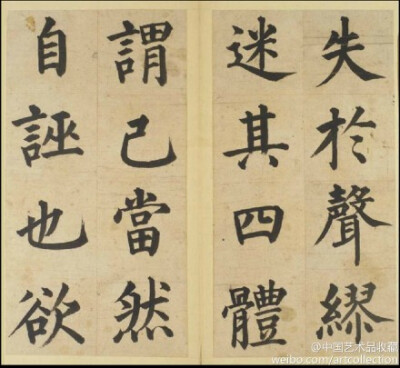 失於聲繆
迷其四體
謂己當然
自誣也欲
@中国艺术品收藏
weibo.com/artcollection